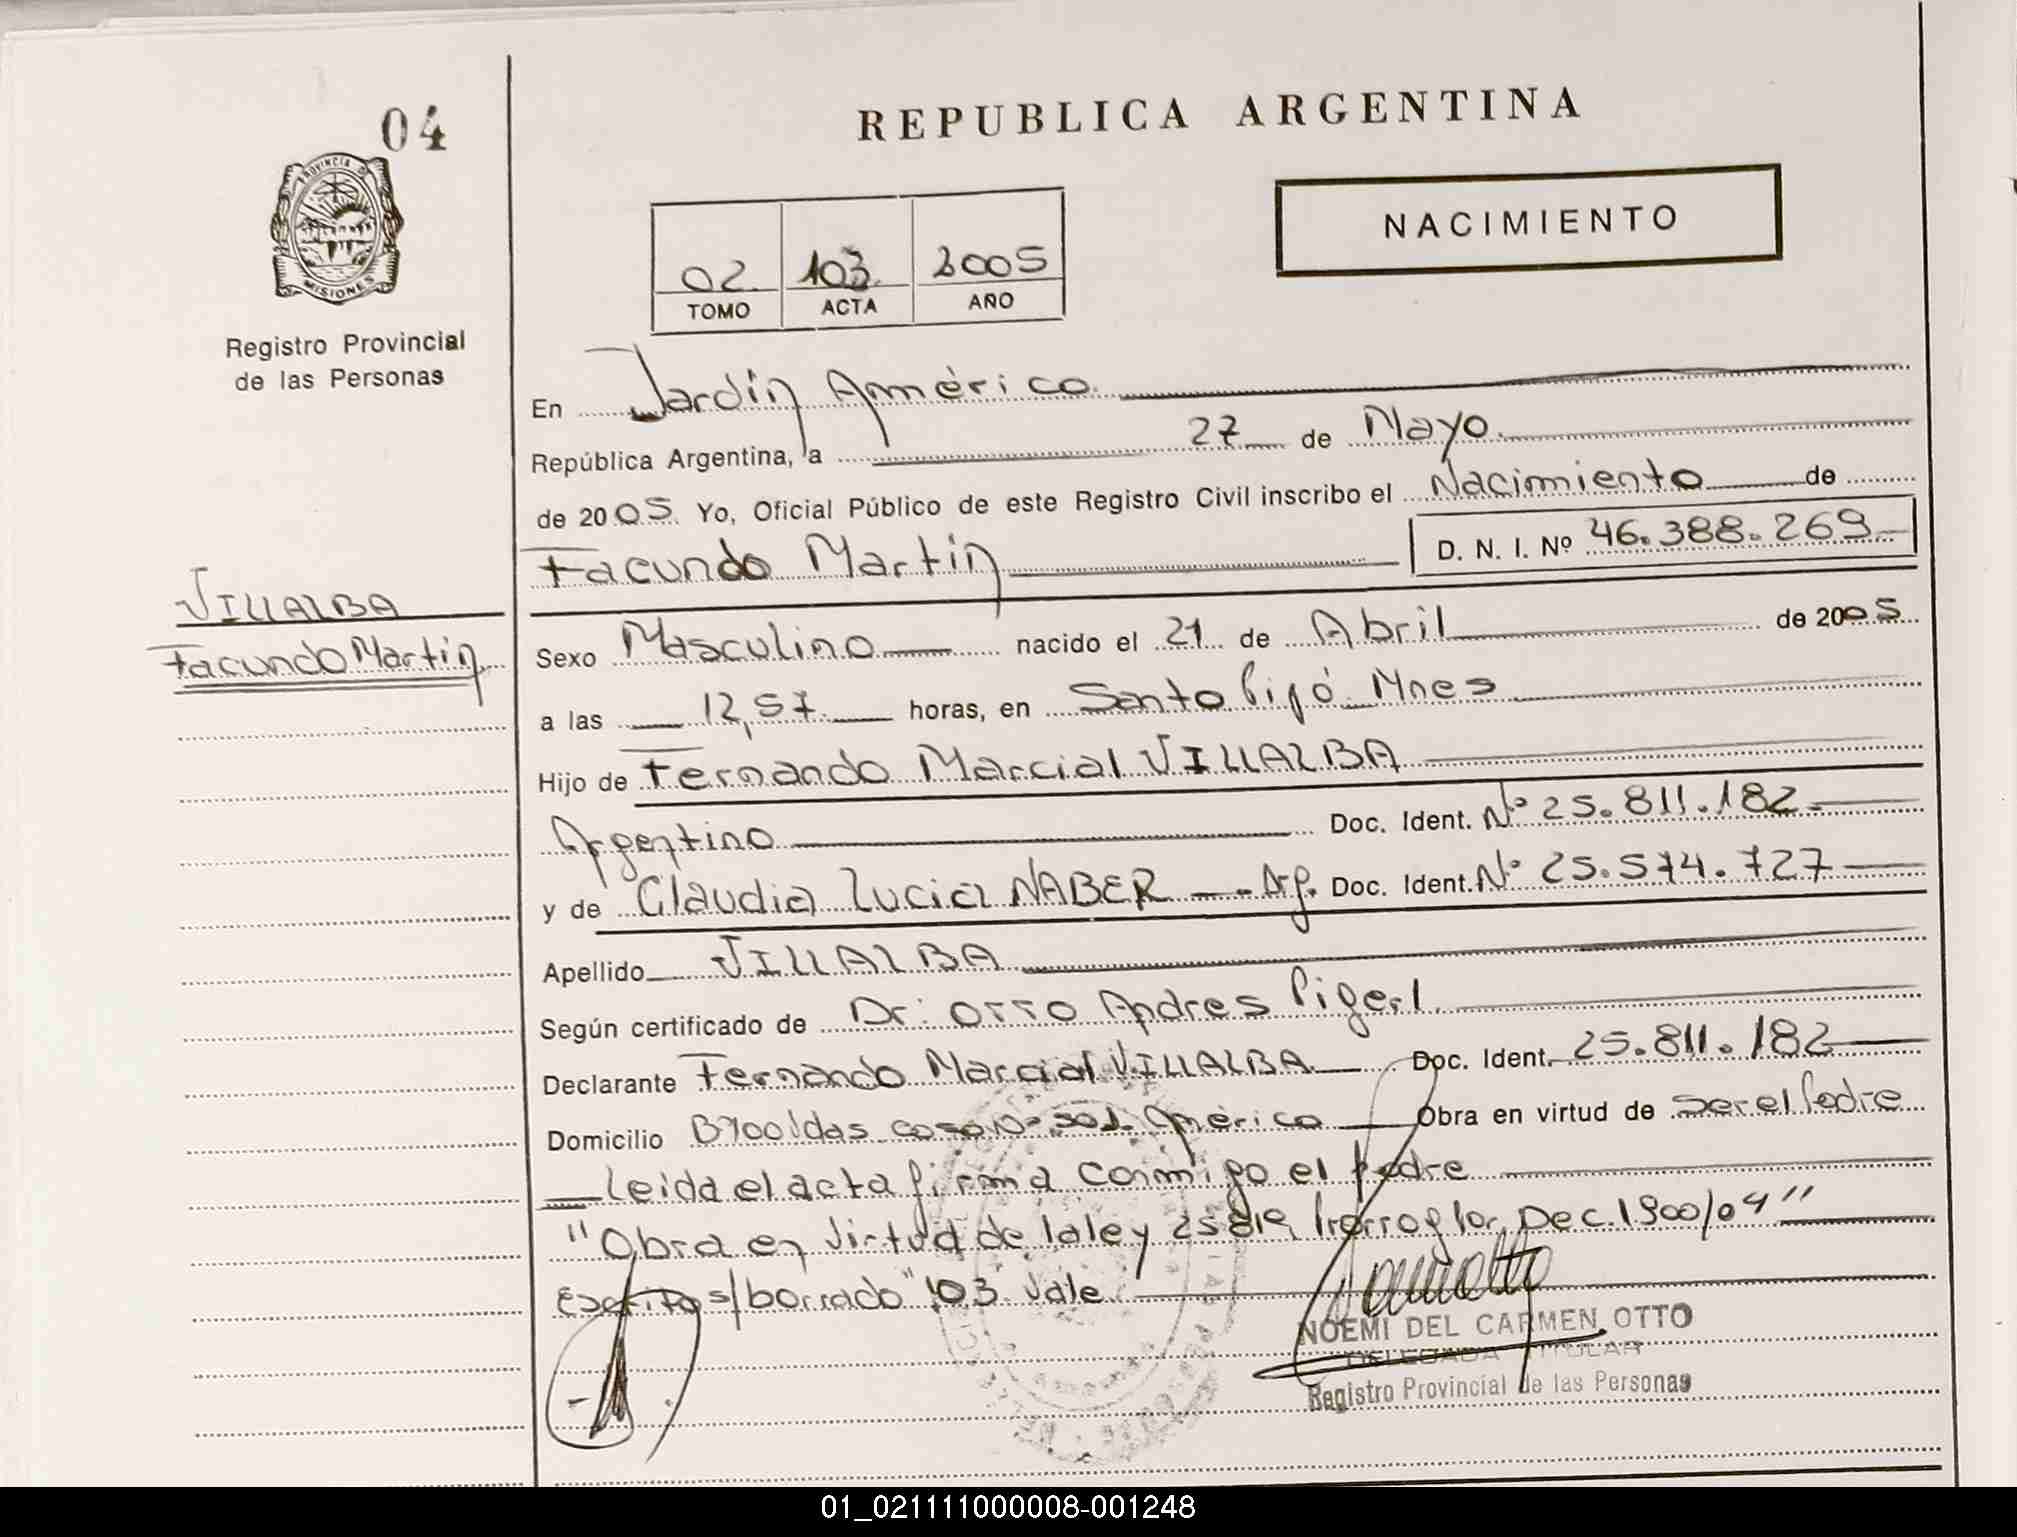 04
REPUBLICA ARGENTINA
PROVINCIA DE
MISIONES
Registro Provincial
de las Personas
NACIMIENTO
02 103 2005
TOMO ACTA AÑO
En Jardín América
República Argentina, a 27 de Mayo
de 2005 Yo, Oficial Público de este Registro Civil inscribo el Nacimiento de
Facundo Martín D. N. I. Nº 46.388.269
VILLALBA
Facundo Martín
Sexo Masculino nacido el 21 de Abril de 2005
a las 12,57 horas, en Santo Pipó Mnes
Hijo de Fernando Marcial VILLALBA
Argentino Doc. Ident. Nº 25.811.182
y de Claudia Lucia NABER Arg. Doc. Ident. Nº 25.574.727
Apellido VILLALBA
Según certificado de Dr: Otto Andres Pigerl
Declarante Fernando Marcial VILLALBA Doc. Ident. 25.811.182
Domicilio casa Nº América Obra en virtud de ser el Padre
Leida el acta firma conmigo el padre
"Obra en virtud de la ley 25819 Prorrog por Dec. 1900/04"
Escrito s/borrado "103 Vale
NOEMI DEL CARMEN OTTO
DELEGADA TITULAR
Registro Provincial de las Personas
01_021111000008-001248